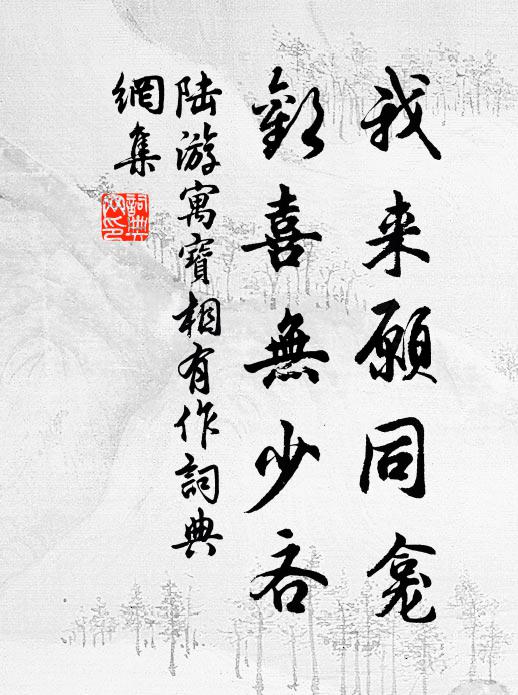 我来願同龛
歡喜無少吝
陆游寓寶相有作詞典
網集
詞典網印